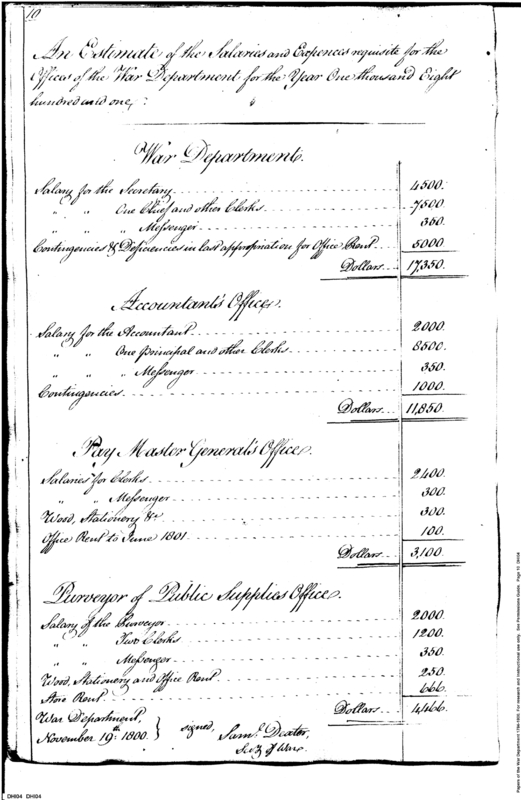 10
An Estimate of the Salaries and Expences requisite for the
Offices of the War Department for the Year One thousand Eight
hundred and one,
War Department.
Salary for the Secretary 4500.
" " One Chief and other Clerks 7500
" " Messenger 350.
Contingencies & Deficiencies in last appropriation for Office Rent 5000
Dollars 17,350.
Accountant's Office.
Salary for the Accountant 2.000.
" " One principal and other Clerks 8500.
" " Messenger 350.
Contingencies 1000.
Dollars 11,850.
Pay Master General's Office.
Salaries for Clerks 2400
" " Messenger 300.
Wood, Stationery &c 300.
Office Rent to June 1801 100.
Dollars 3,100.
Purveyor of Public Supplies Office.
Salary of the Purveyor 2000.
" " Two Clerks 1200.
" " Messenger 350.
Wood, Stationery and Office Rent 250
Store Rent 666.
Dollars 4,466.
War Department,
November 19th. 1800. } signed, Saml. Dexter,
Secy of War.
Papers of the War Department 1784-1800. For research and educational use only. See Permission Details Page 10 DHI04
DHI04 DHI04